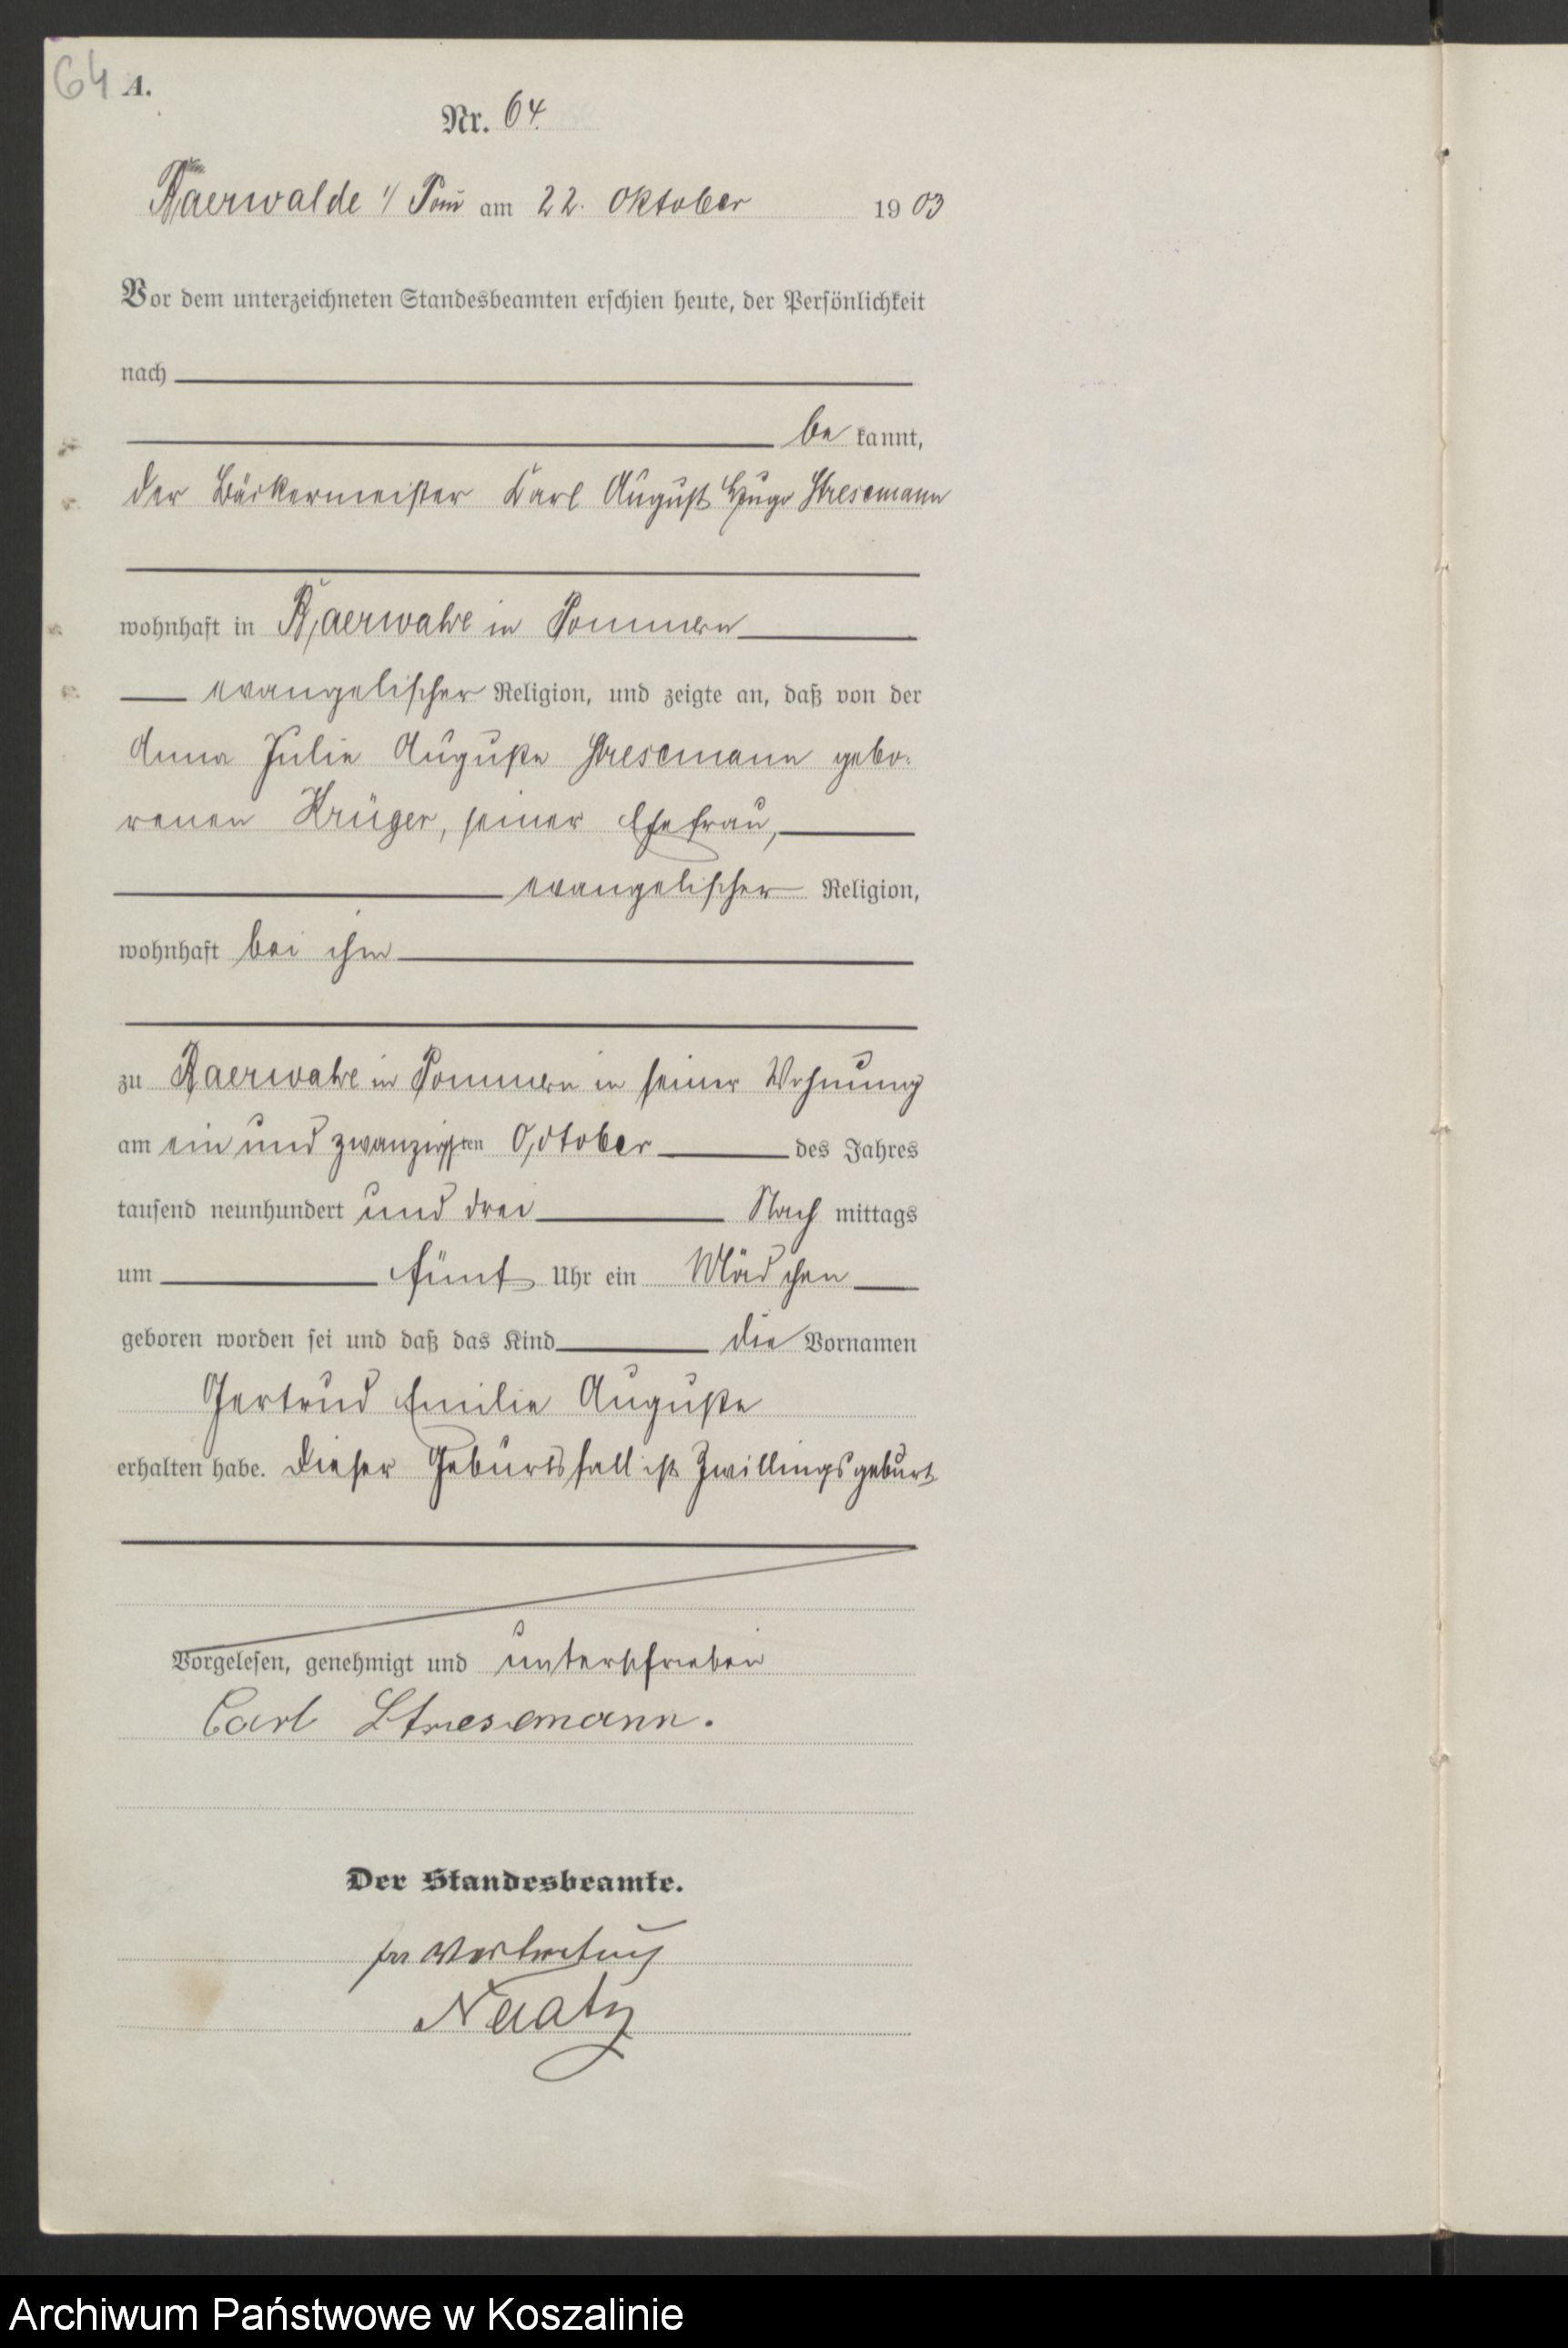 64 A.
Nr. 64.
Baerwalde i/ Pom am 22. Oktober 1903
Vor dem unterzeichneten Standesbeamten erschien heute, der Persönlichkeit
nach
be kannt,
der Bäckermeister Karl August Hugo Stresemann
wohnhaft in Baerwalde in Pommern
evangelischer Religion, und zeigte an, daß von der
Anna Julie Auguste Stresemann gebo-
renen Krüger, seiner Ehefrau,
evangelischer Religion,
wohnhaft bei ihm
zu Baerwalde in Pommern in seiner Wohnung
am ein und zwanzigsten October des Jahres
tausend neunhundert und drei Nach mittags
um fünf Uhr ein Mädchen
geboren worden sei und daß das Kind die Vornamen
Gertrud Emilie Auguste
erhalten habe. Dieser Geburtsfall ist Zwillingsgeburt
Vorgelesen, genehmigt und unterschrieben
Carl Stresemann.
Der Standesbeamte.
In Vertretung
Naatz
Archiwum Państwowe w Koszalinie